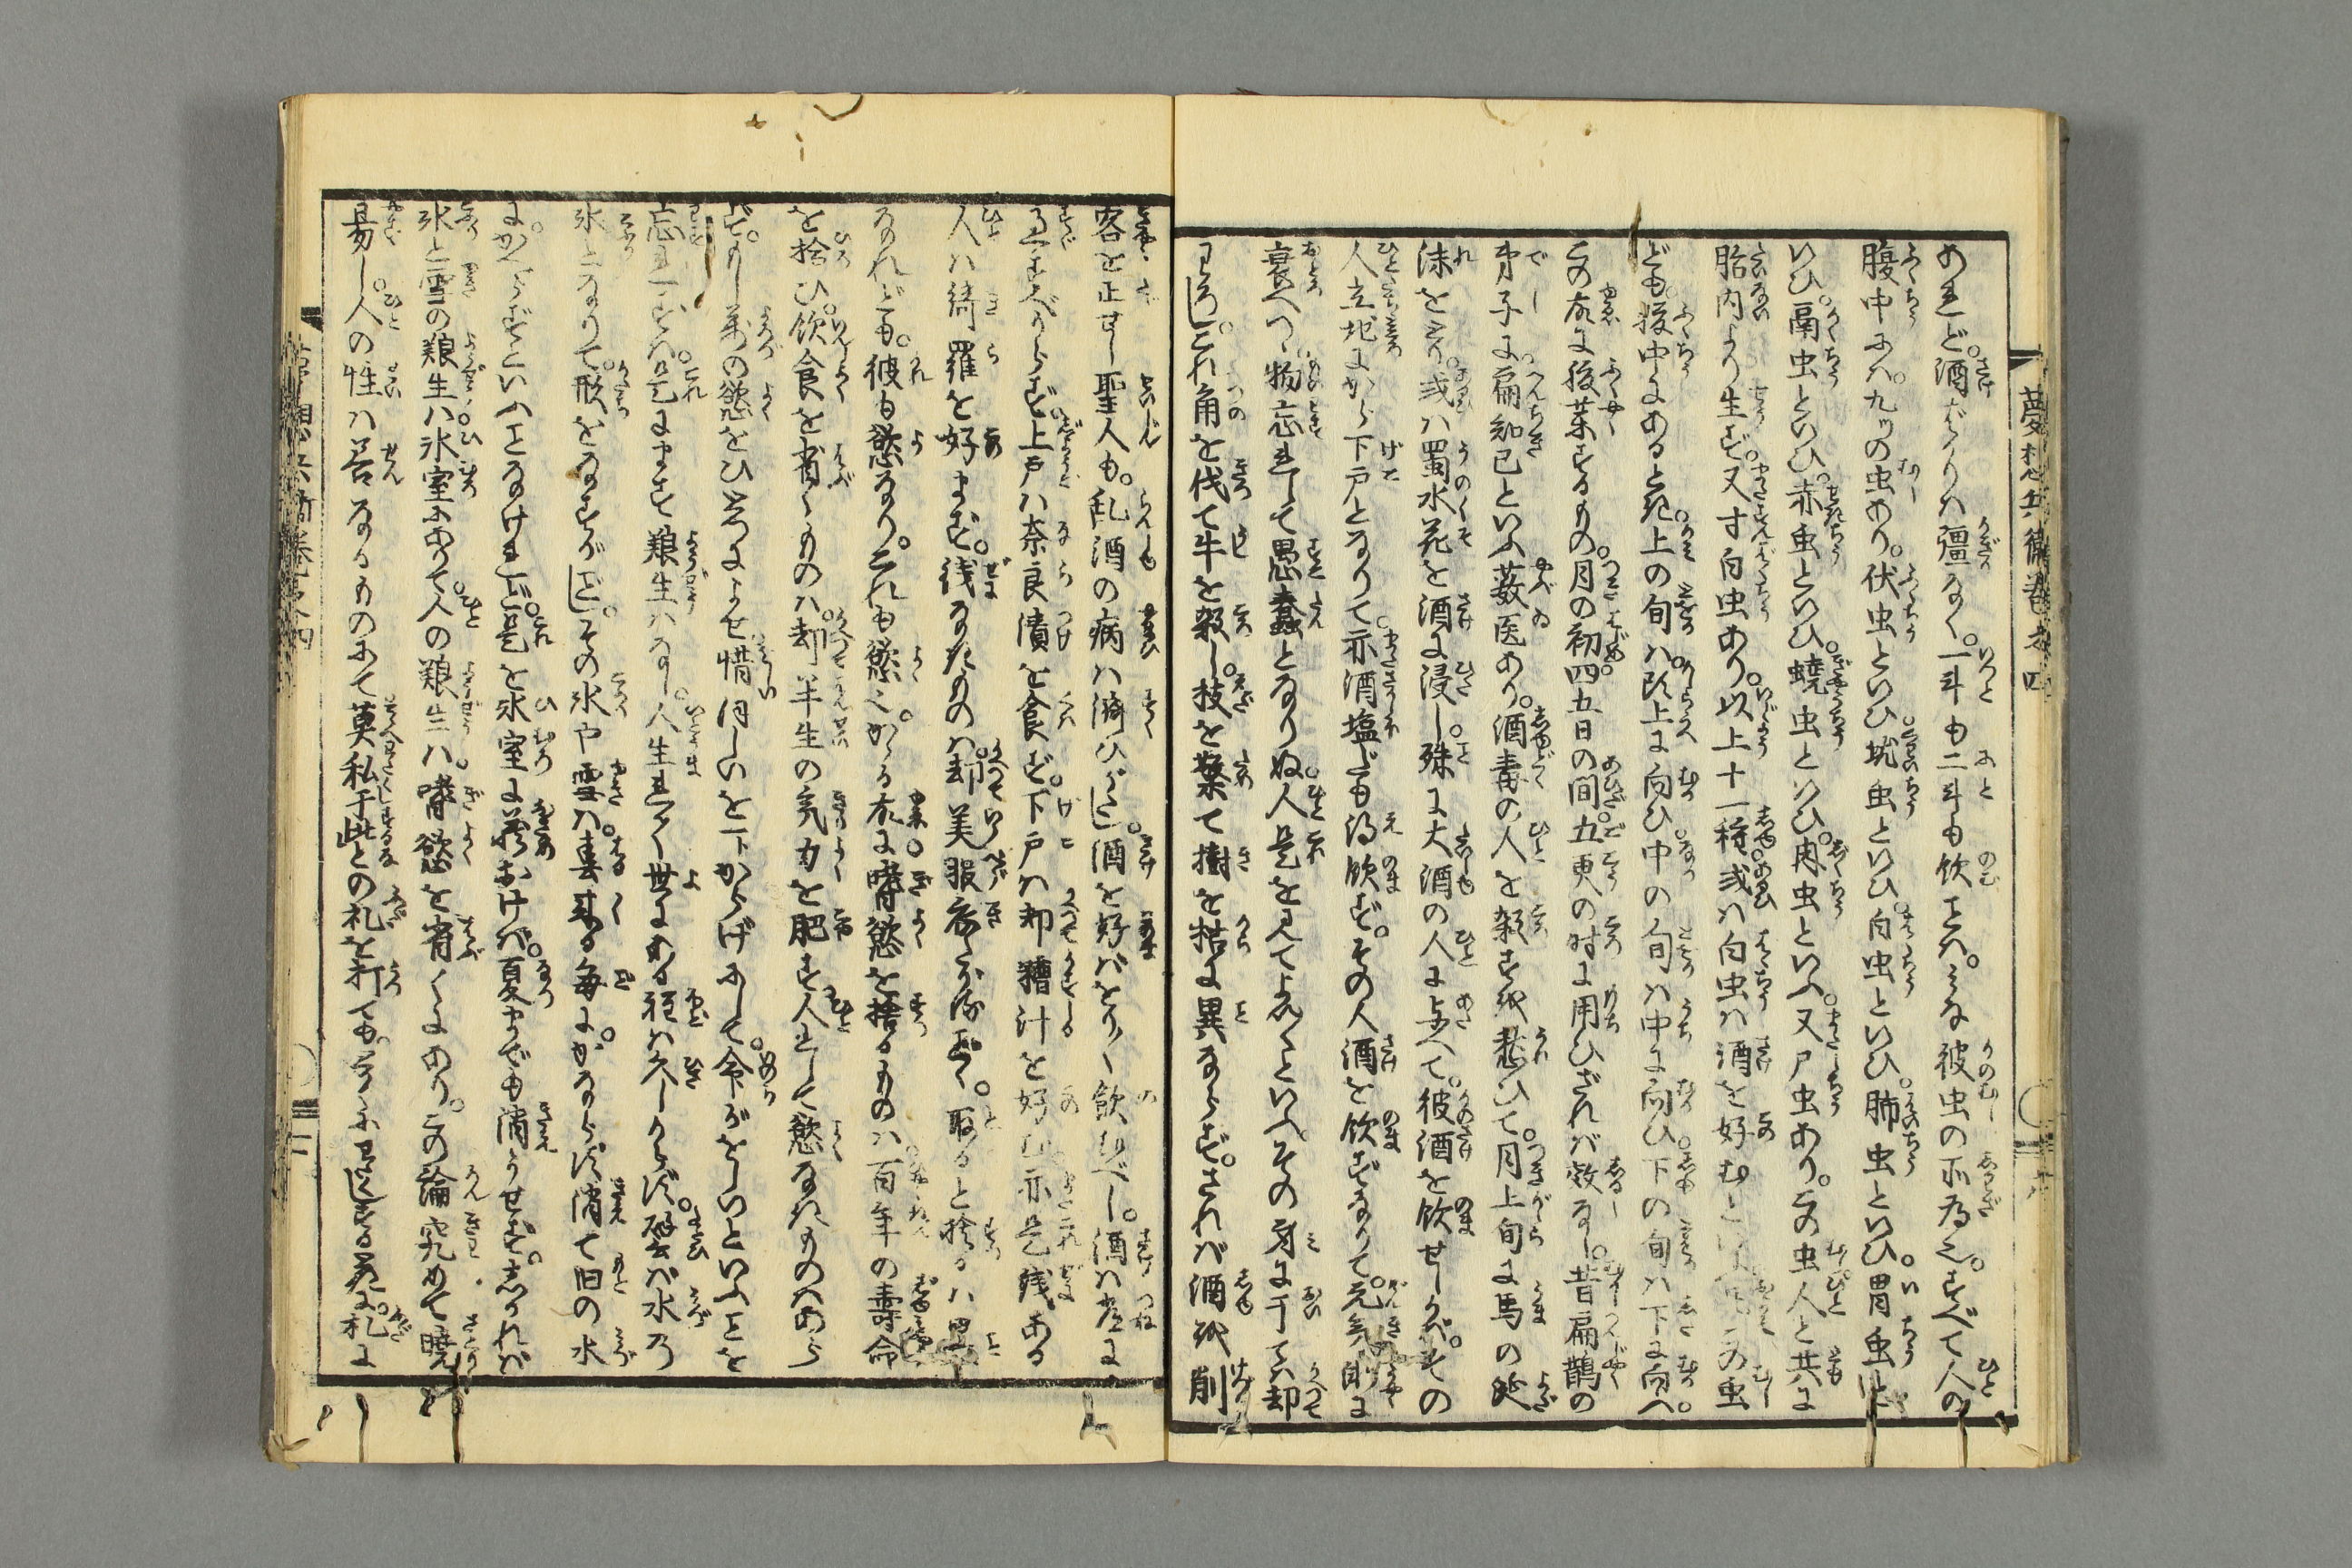 夢想兵衛
あれど。酒ばかりは彊なく。一斗も二斗も飲ことは。みな彼虫の所為也。すべて人の
腹中には。九ツの虫あり。伏虫といひ蚘虫といひ。白虫といひ。肺虫といひ。胃虫と
いひ。鬲虫といひ。赤虫といひ。蟯虫といひ。肉虫といふ。又尸虫あり。この虫人と共に
胎内より生ず。又寸白虫あり。以上十一種或は白虫は酒を好むといふ この虫
ども。腹中にあると死。上の旬は。頭上に向ひ。中の旬は中に向ひ。下の旬は下に向ふ。
この故に服薬するもの。月の初四五日の間。五更の時に用ひざれば效なし。昔扁鵲の
弟子に扁知已といふ薮医あり。酒毒の人を殺すを愁ひて。月上旬に馬の涎
沫をとり。或は蜀水花を酒に浸し。殊に大酒の人に与へて。彼酒を飲せしかば。その
人立地にから下戸となりて。亦酒塩でも得飲ず。その人酒を飲ずなりて。元気 に
衰へつゝ物忘れして愚蠢となりぬ。人是を見てよしといへど。その身に于ては却
わろし。これ角を伐て牛を殺し。枝を棄て樹を枯に異ならず。されば酒を削
客を正せし聖人も。乱酒の病は済ひがたし。酒を好ばとり〳〵飲むべし。酒は屋に
るすべからず。上戸は奈良漬を食ず。下戸は却糟汁を好む。亦是銭ある
人は綺羅を好まず。銭なきものは。却美服 取ると捨るは
なれども。彼も慾なり。これも慾也。かゝる故に嗜慾を捨るものは。百年の壽命
を捨ひ。飲食を省くものは。却半生の気力を肥す。人として慾なきものはあら
ず。もし万の慾をひとつによせ惜ほしいを一トからげにして。命がをしいといふことを
忘れずは。是にます養生はなし。人生れて世にある程は久しからず。譬ば水の
氷となりて。形をなすがごとし。その氷や雪は。春来る毎に。かならず消て旧の水
にかへらずといふことなけれど。是を氷室に蔵おけば。夏までも消うせず。しかれば
氷と雪の養生は氷室にありて。人の養生は。嗜慾を省くにあり。この論究めて暁
易し。人の性は善なるものにて莫私于此との札を打ても。 ゆゑに。札に